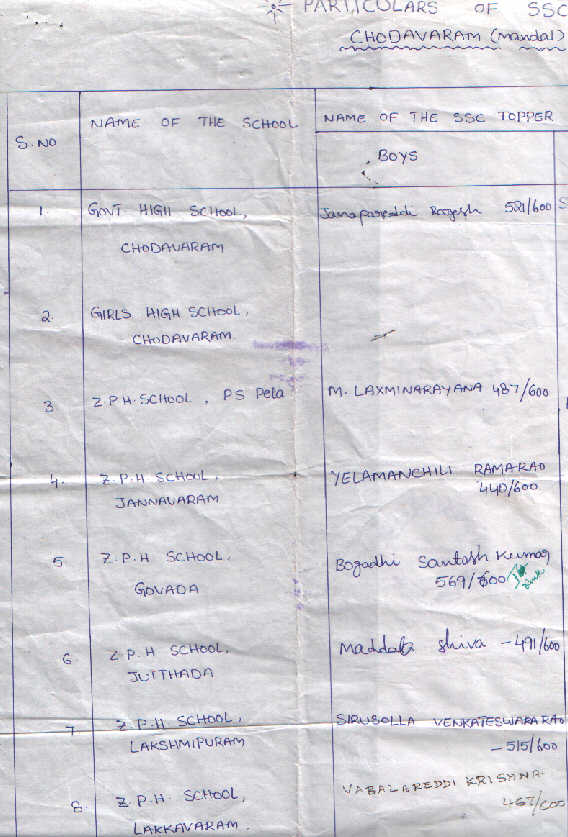 PARTICULARS OF SSC
CHODAVARAM (Mandal)
S.NO
NAME OF THE SCHOOL
NAME OF THE SSC TOPPER
BOYS
1. GOVT HIGH SCHOOL,
CHODAVARAM
521/600
2. GIRLS HIGH SCHOOL,
CHODAVARAM.
3 Z.P.H. SCHOOL, PS Peta
M. LAXMINARAYANA 487/600
4. Z.P.H SCHOOL,
JANNAVARAM
YELAMANCHILI RAMARAO
440/600
5 Z.P.H SCHOOL,
GOVADA
Bogadhi Santosh Kumar
569/600
6 Z.P.H SCHOOL,
JUTTHADA
Maddala Shiva - 491/600
7 Z.P.H SCHOOL,
LAKSHMIPURAM
SIRUSOLLA VENKATESWARA RAO
- 515/600
8. Z.P.H. SCHOOL,
LAKKAVARAM.
VABALAREDDI KRISHNA
467/600